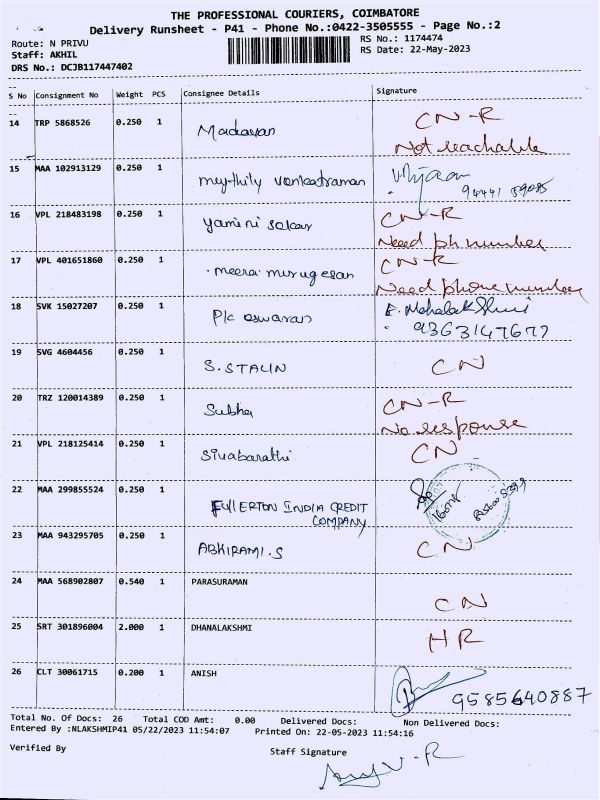 THE PROFESSIONAL COURIERS, COIMBATORE
Delivery Runsheet - P41 - Phone No.:0422-3505555 - Page No.:2
Route: N PRIVU
RS No.: 1174474
Staff: AKHIL
RS Date: 22-May-2023
DRS No.: DCJB117447402
S No Consignment No Weight PCS Consignee Details Signature
14 TRP 5868526 0.250 1 Madavan CN-R
Not reachable
15 MAA 102913129 0.250 1 meythily venkatraman
94441 59085
16 VPL 218483198 0.250 1 yamini CN-R
Need ph number
17 VPL 401651860 0.250 1 meera murugesan CN-R
Need phone number
18 SVK 15027207 0.250 1 P/c eswaran E. Mahalakshmi
9363147677
19 SVG 4604456 0.250 1 S.STALIN CN
20 TRZ 120014389 0.250 1 Subha CN-R
No response
21 VPL 218125414 0.250 1 Sivabarathi CN
22 MAA 299855524 0.250 1 FULLERTON INDIA CREDIT
COMPANY
23 MAA 943295705 0.250 1 ABHIRAMI.S CN
24 MAA 568902807 0.540 1 PARASURAMAN
CN
25 SRT 301896004 2.000 1 DHANALAKSHMI HR
26 CLT 30061715 0.200 1 ANISH
9585640887
Total No. Of Docs: 26 Total COD Amt: 0.00 Delivered Docs: Non Delivered Docs:
Entered By :NLAKSHMIP41 05/22/2023 11:54:07 Printed On: 22-05-2023 11:54:16
Verified By Staff Signature